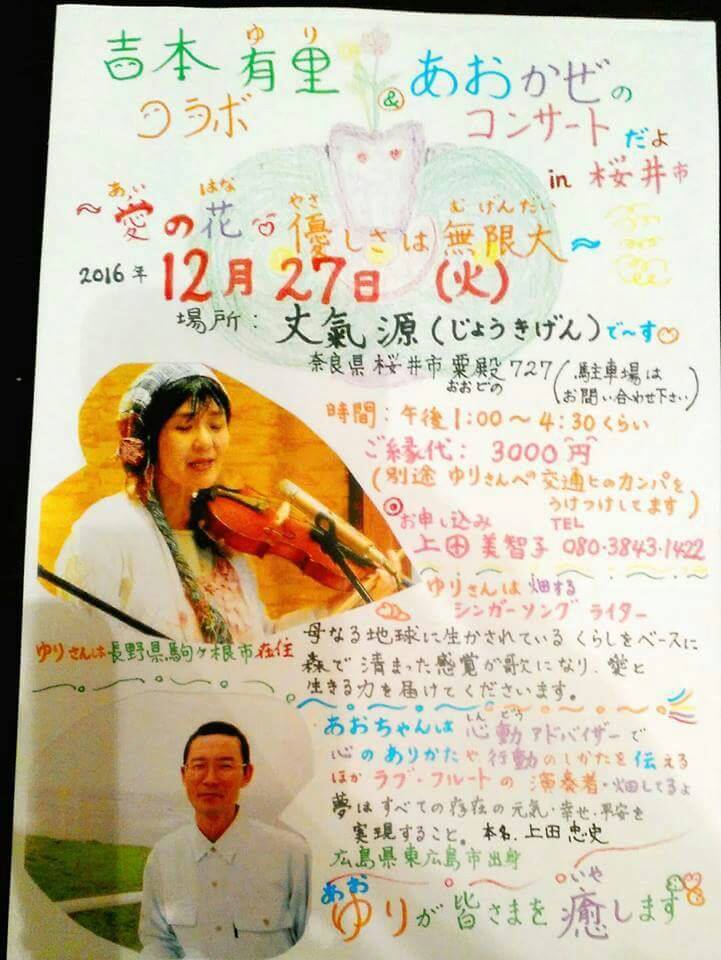 ゆり
吉本有里 & あおかぜの
コラボ コンサートだよ
in 桜井市
あい はな やさ むげんだい
～愛の花♡優しさは無限大～
2016年 12月27日 (火)
場所: 丈氣源(じょうきげん)で～す
奈良県桜井市粟殿727(駐車場は
おおどの お問い合わせ下さい)
時間:午後1:00～4:30くらい
ご縁代: 3000円
(別途 ゆりさんへの交通ヒのカンパを
うけつけしてます)
お申し込み TEL
上田美智子 080-3843-1422
ゆりさんは 畑する
シンガーソングライター
ゆりさんは長野県駒ヶ根市在住
母なる地球に生かされているくらしをベースに
森で清まった感覚が歌になり、愛と
生きる力を届けてくださいます。
しんどう
あおちゃんは心動アドバイザーで
心のありかたや行動のしかたを伝える
ほかラブ・フルートの演奏者・畑してるよ
夢はすべての存在の元気・幸せ・平安を
実現すること。本名.上田忠史
広島県東広島市出身
あお いや
ゆりが皆さまを癒します